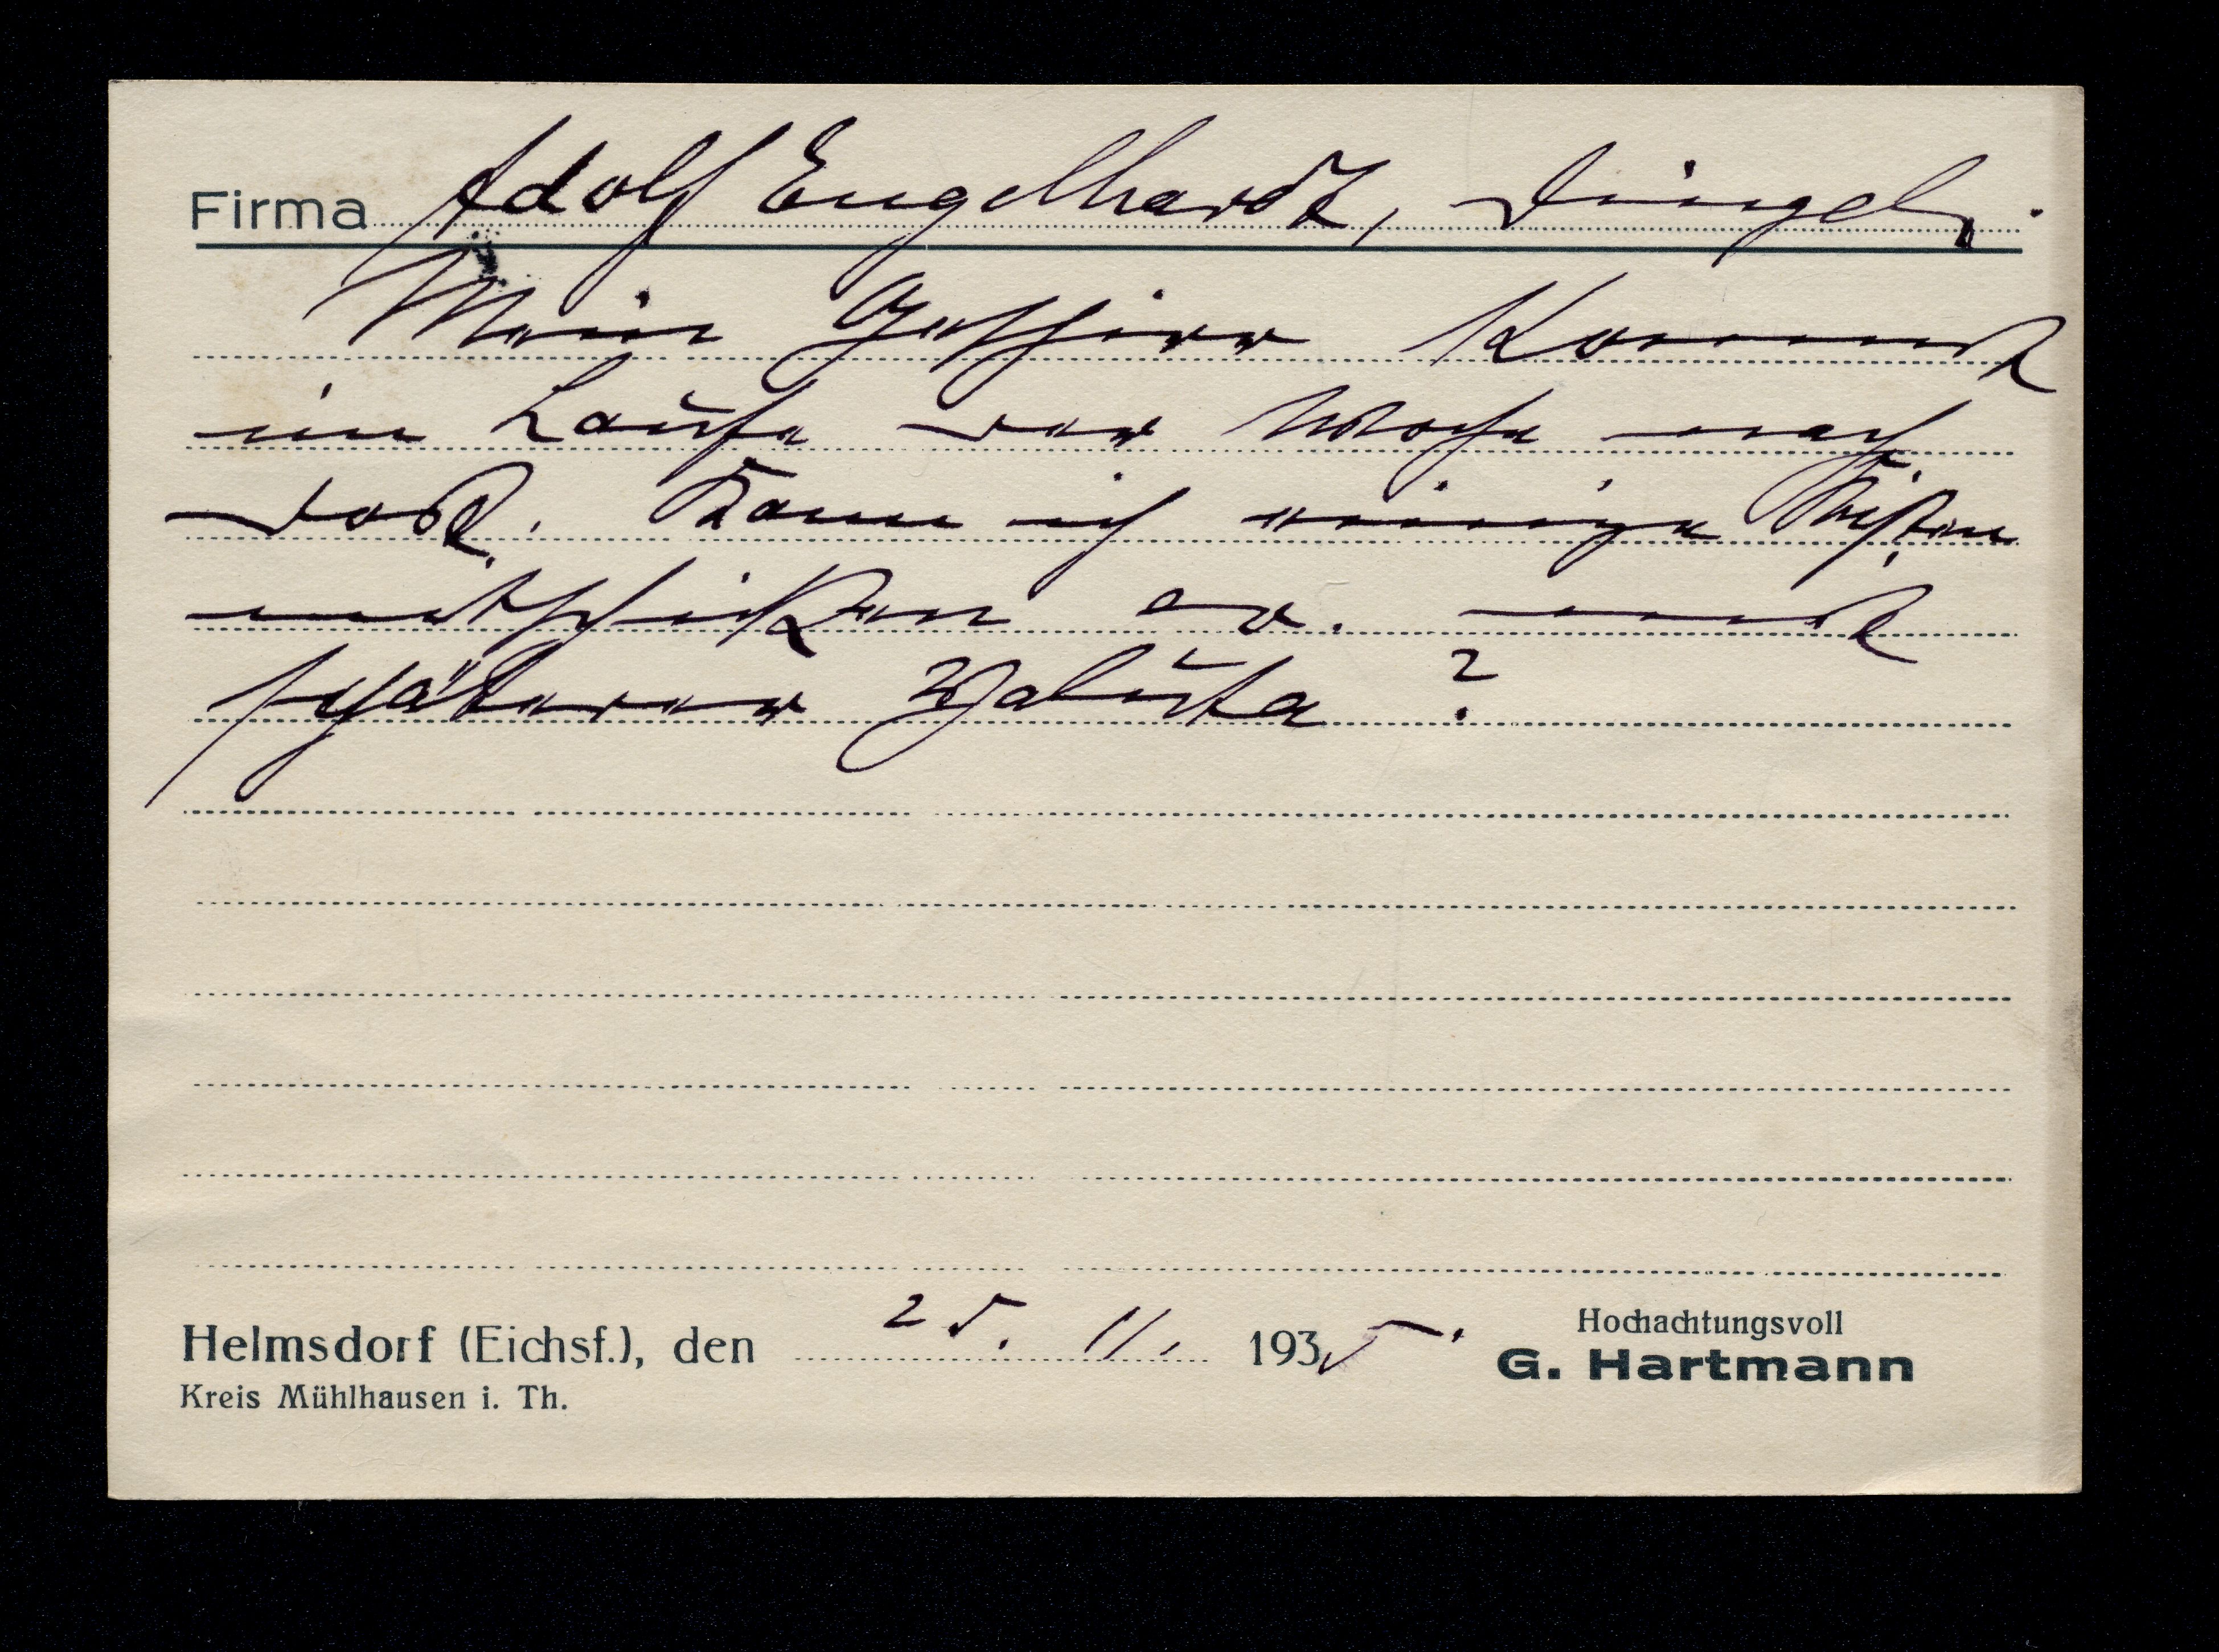 Firma Adolf Engelhardt, Dingel.
Mein Geschirr kommt
im Laufe der Woche nach
dort. Kann ich einige Kisten
mitschicken ev. mit
späterer Valuta ?
Helmsdorf (Eichsf.), den 25. 11. 1935.
Kreis Mühlhausen i. Th.
Hochachtungsvoll
G. Hartmann